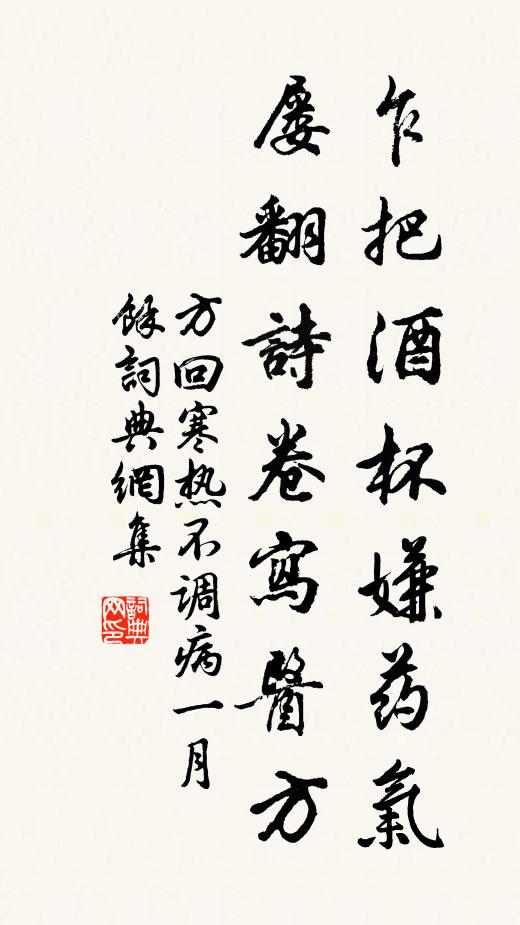 乍把酒杯嫌药氣
屡翻詩卷寫醫方
方回寒热不调病一月
餘詞典網集
詞典
网印